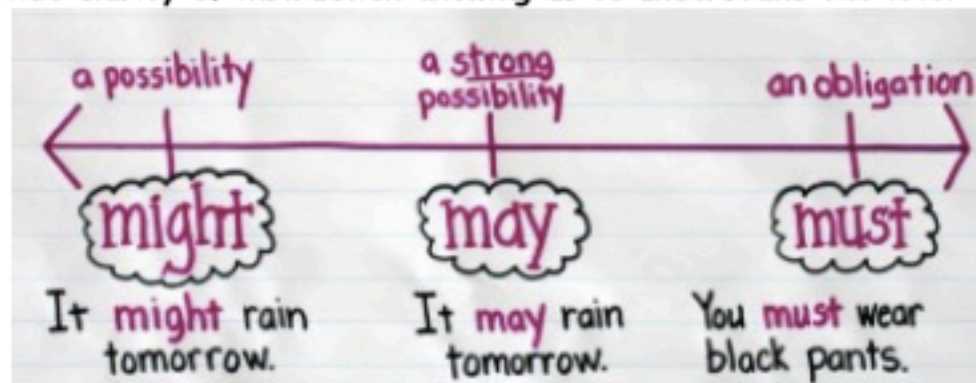 a possibility
a strong
possibility
an obligation
might
may
must
It might rain
tomorrow.
It may rain
tomorrow.
You must wear
black pants.